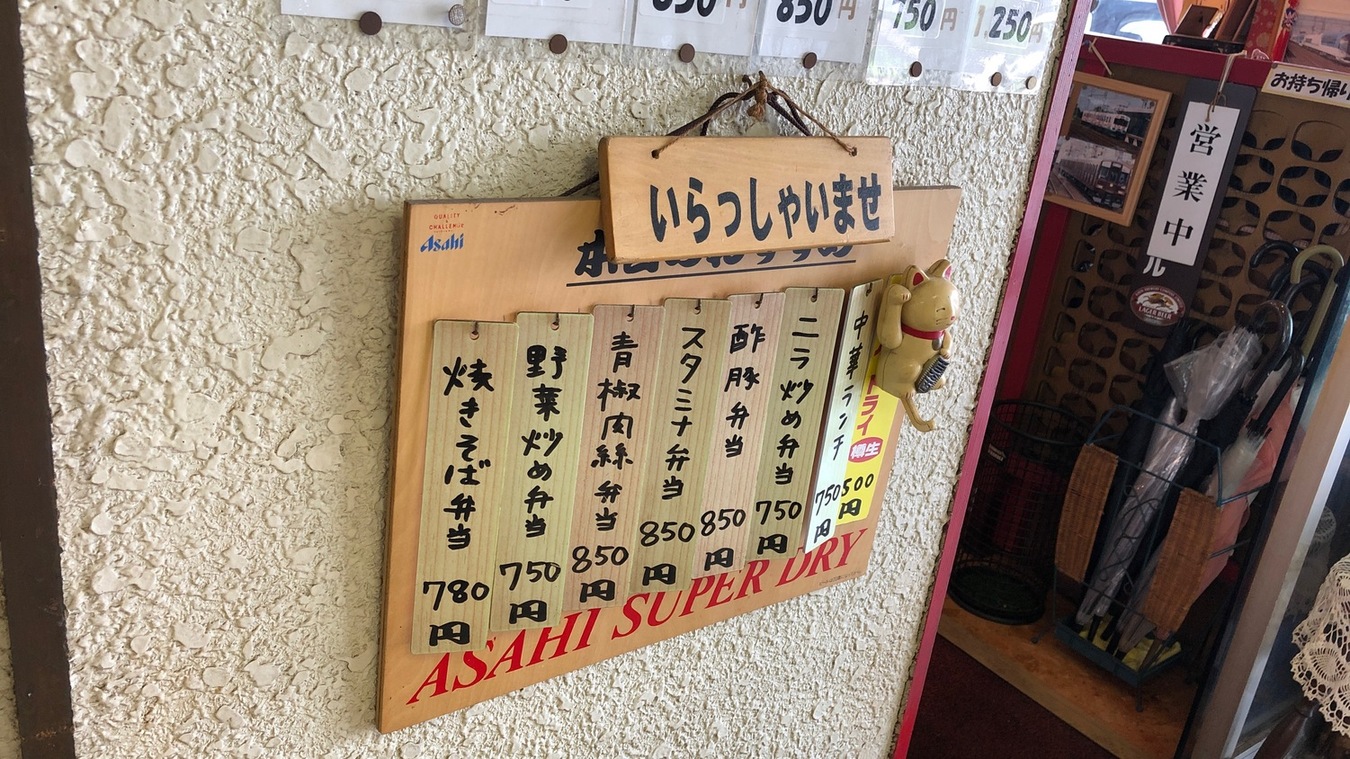 850円
750円
1,250円
いらっしゃいませ
QUALITY
CHALLENGE
Asahi
焼きそば弁当 780円
野菜炒め弁当 750円
青椒肉絲弁当 850円
スタミナ弁当 850円
酢豚弁当 850円
ニラ炒め弁当 750円
中華ランチ 750円
ドライ 樽生 500円
ASAHI SUPER DRY
お持ち帰り
営業中
ル
LAGER BEER